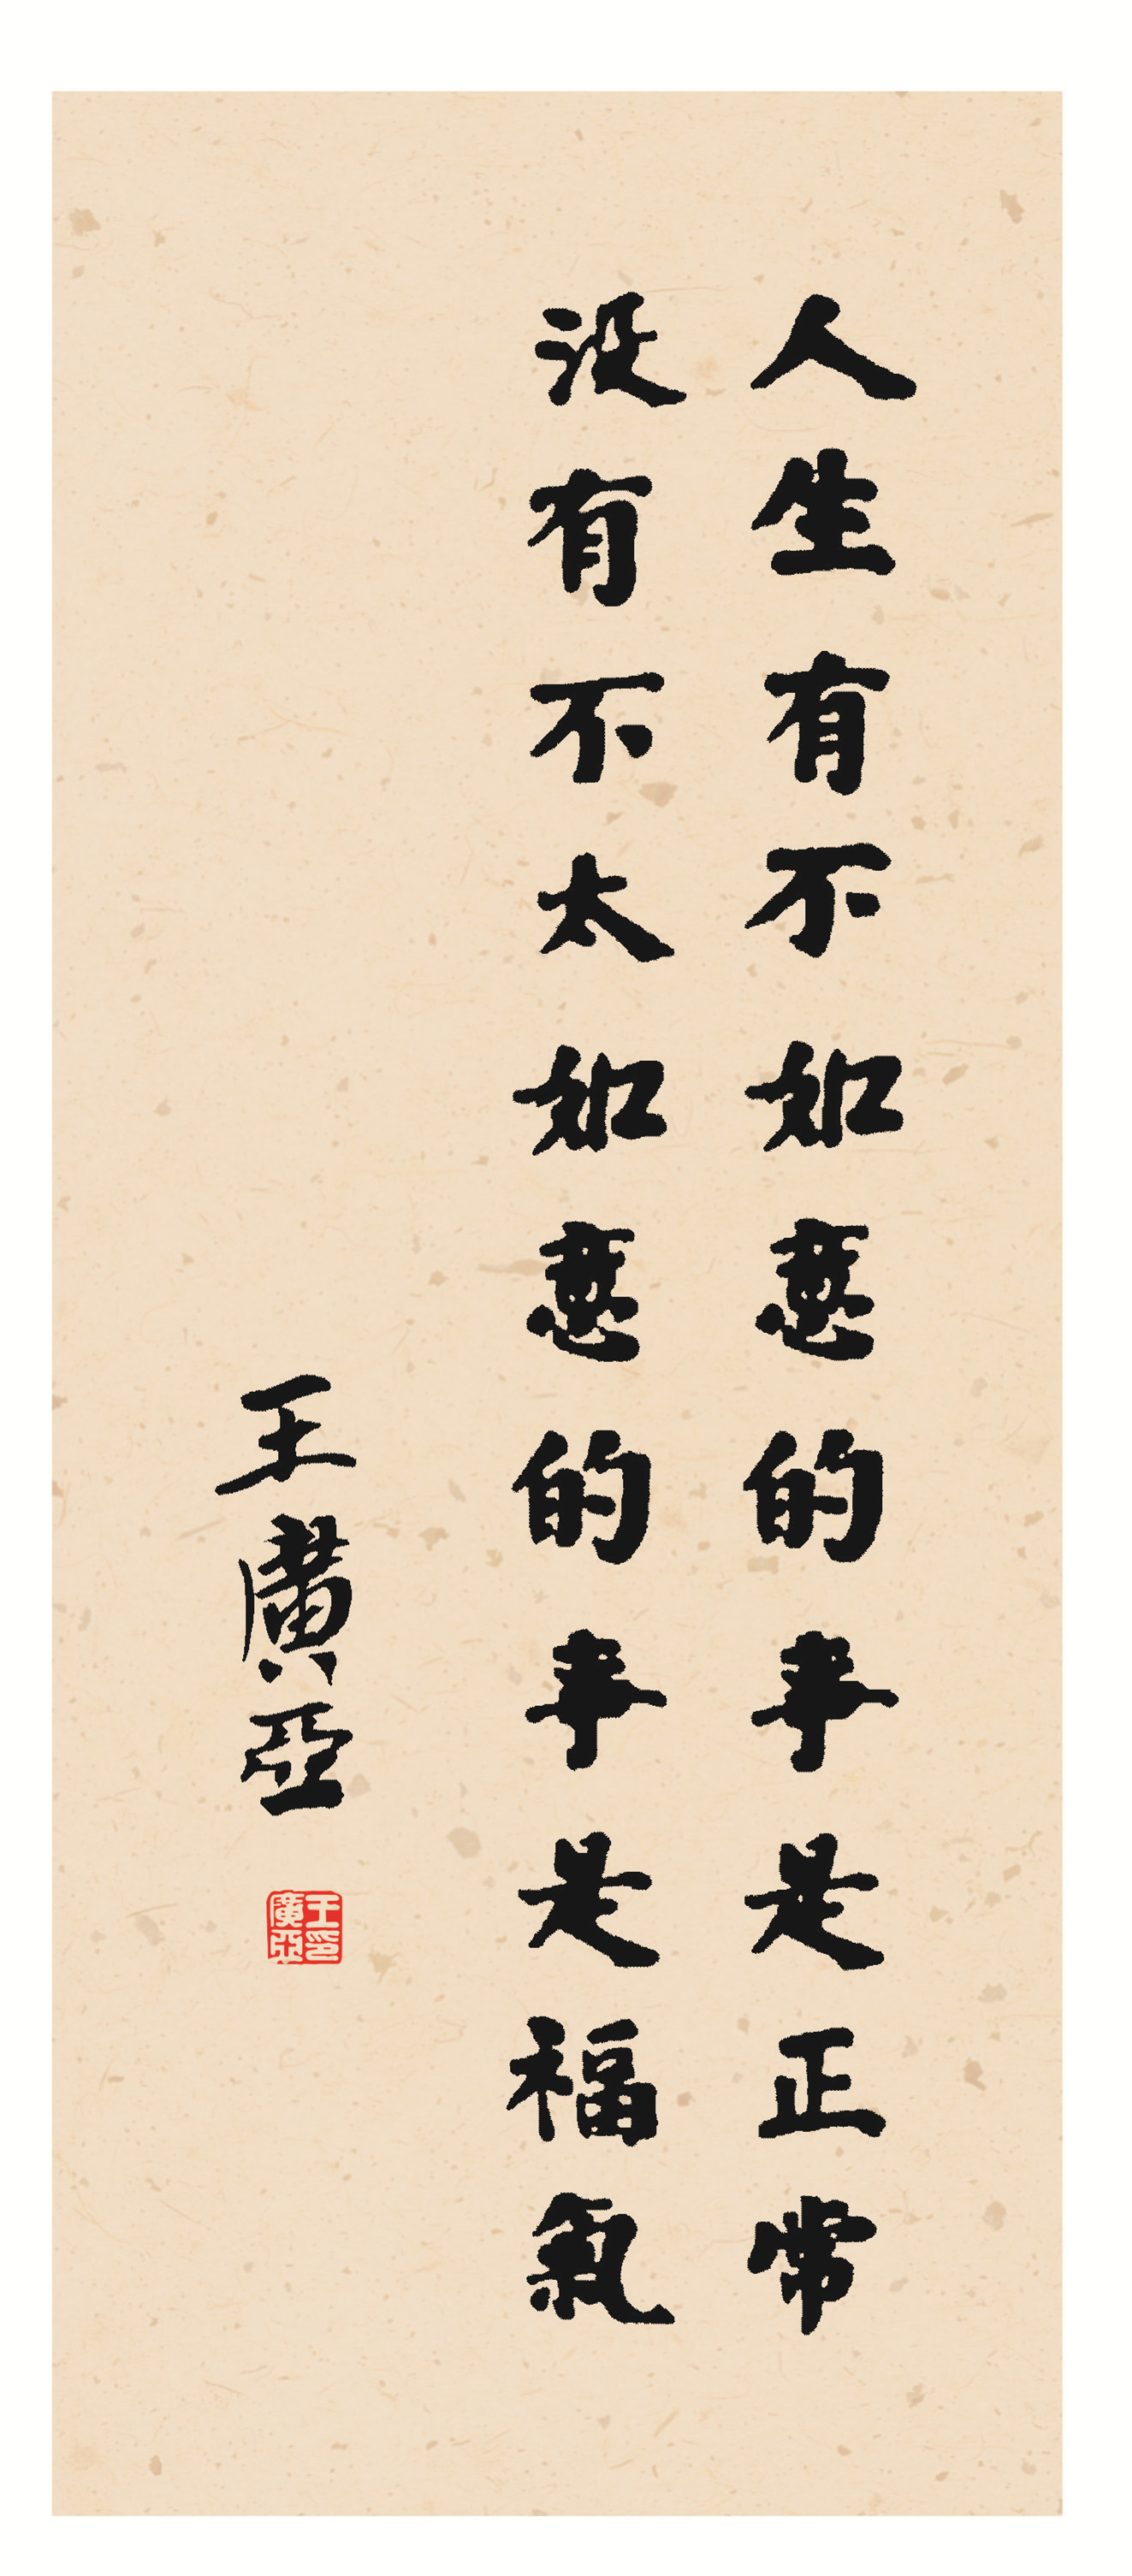 人生有不如意的事是正常
没有不太如意的事是福氣
王廣亞
王印
廣亞